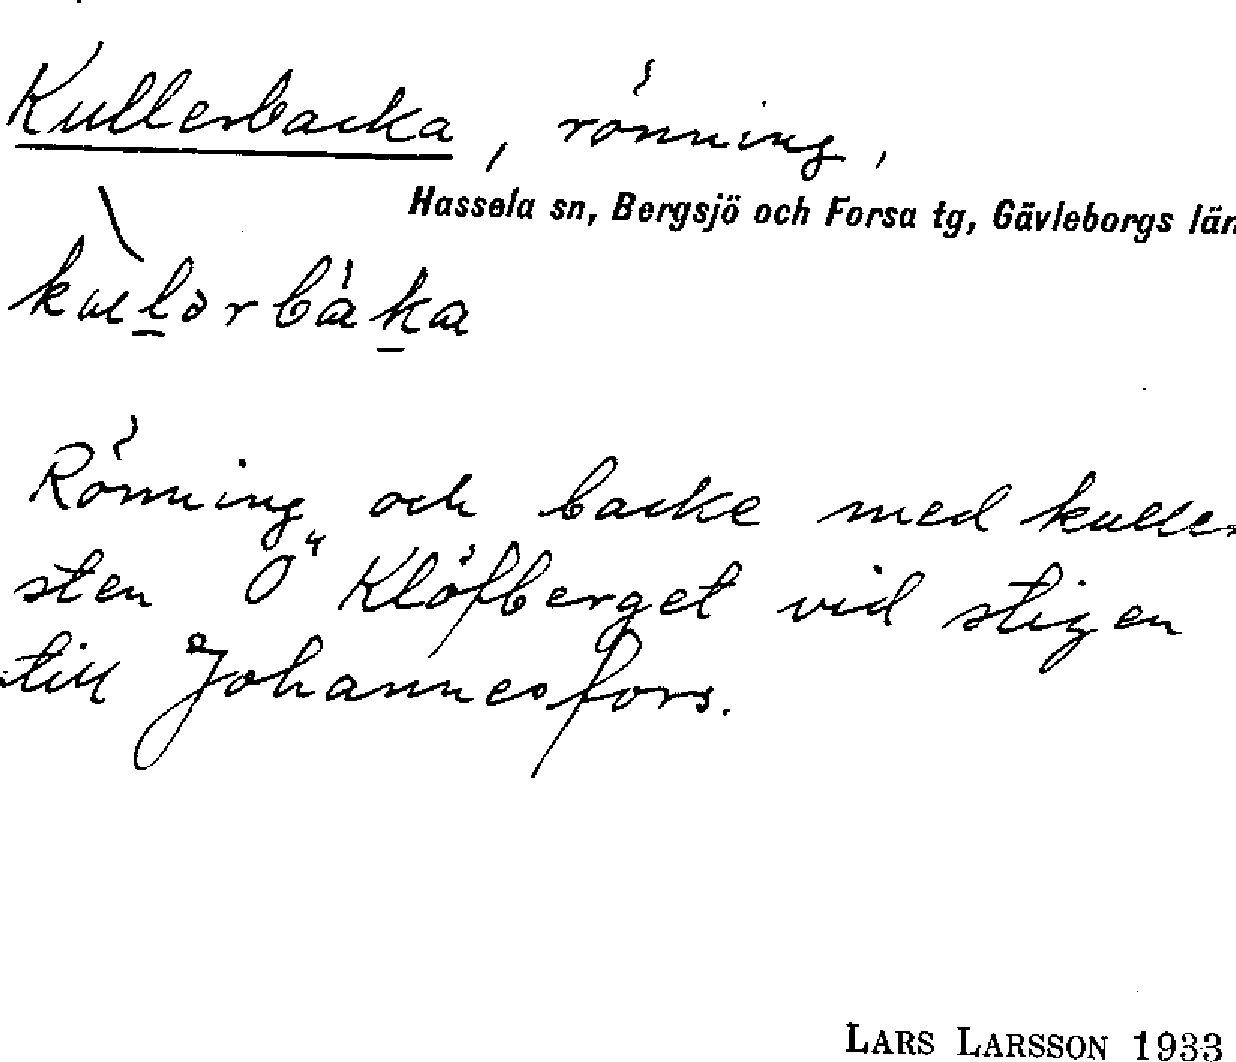 Kullerbacka, rönning,
Hassela sn, Bergsjö och Forsa tg, Gävleborgs län
kulərbàka
Rönning och backe med kuller
sten Ö Klöfberget vid stigen
till Johannesfors.
LARS LARSSON 1933